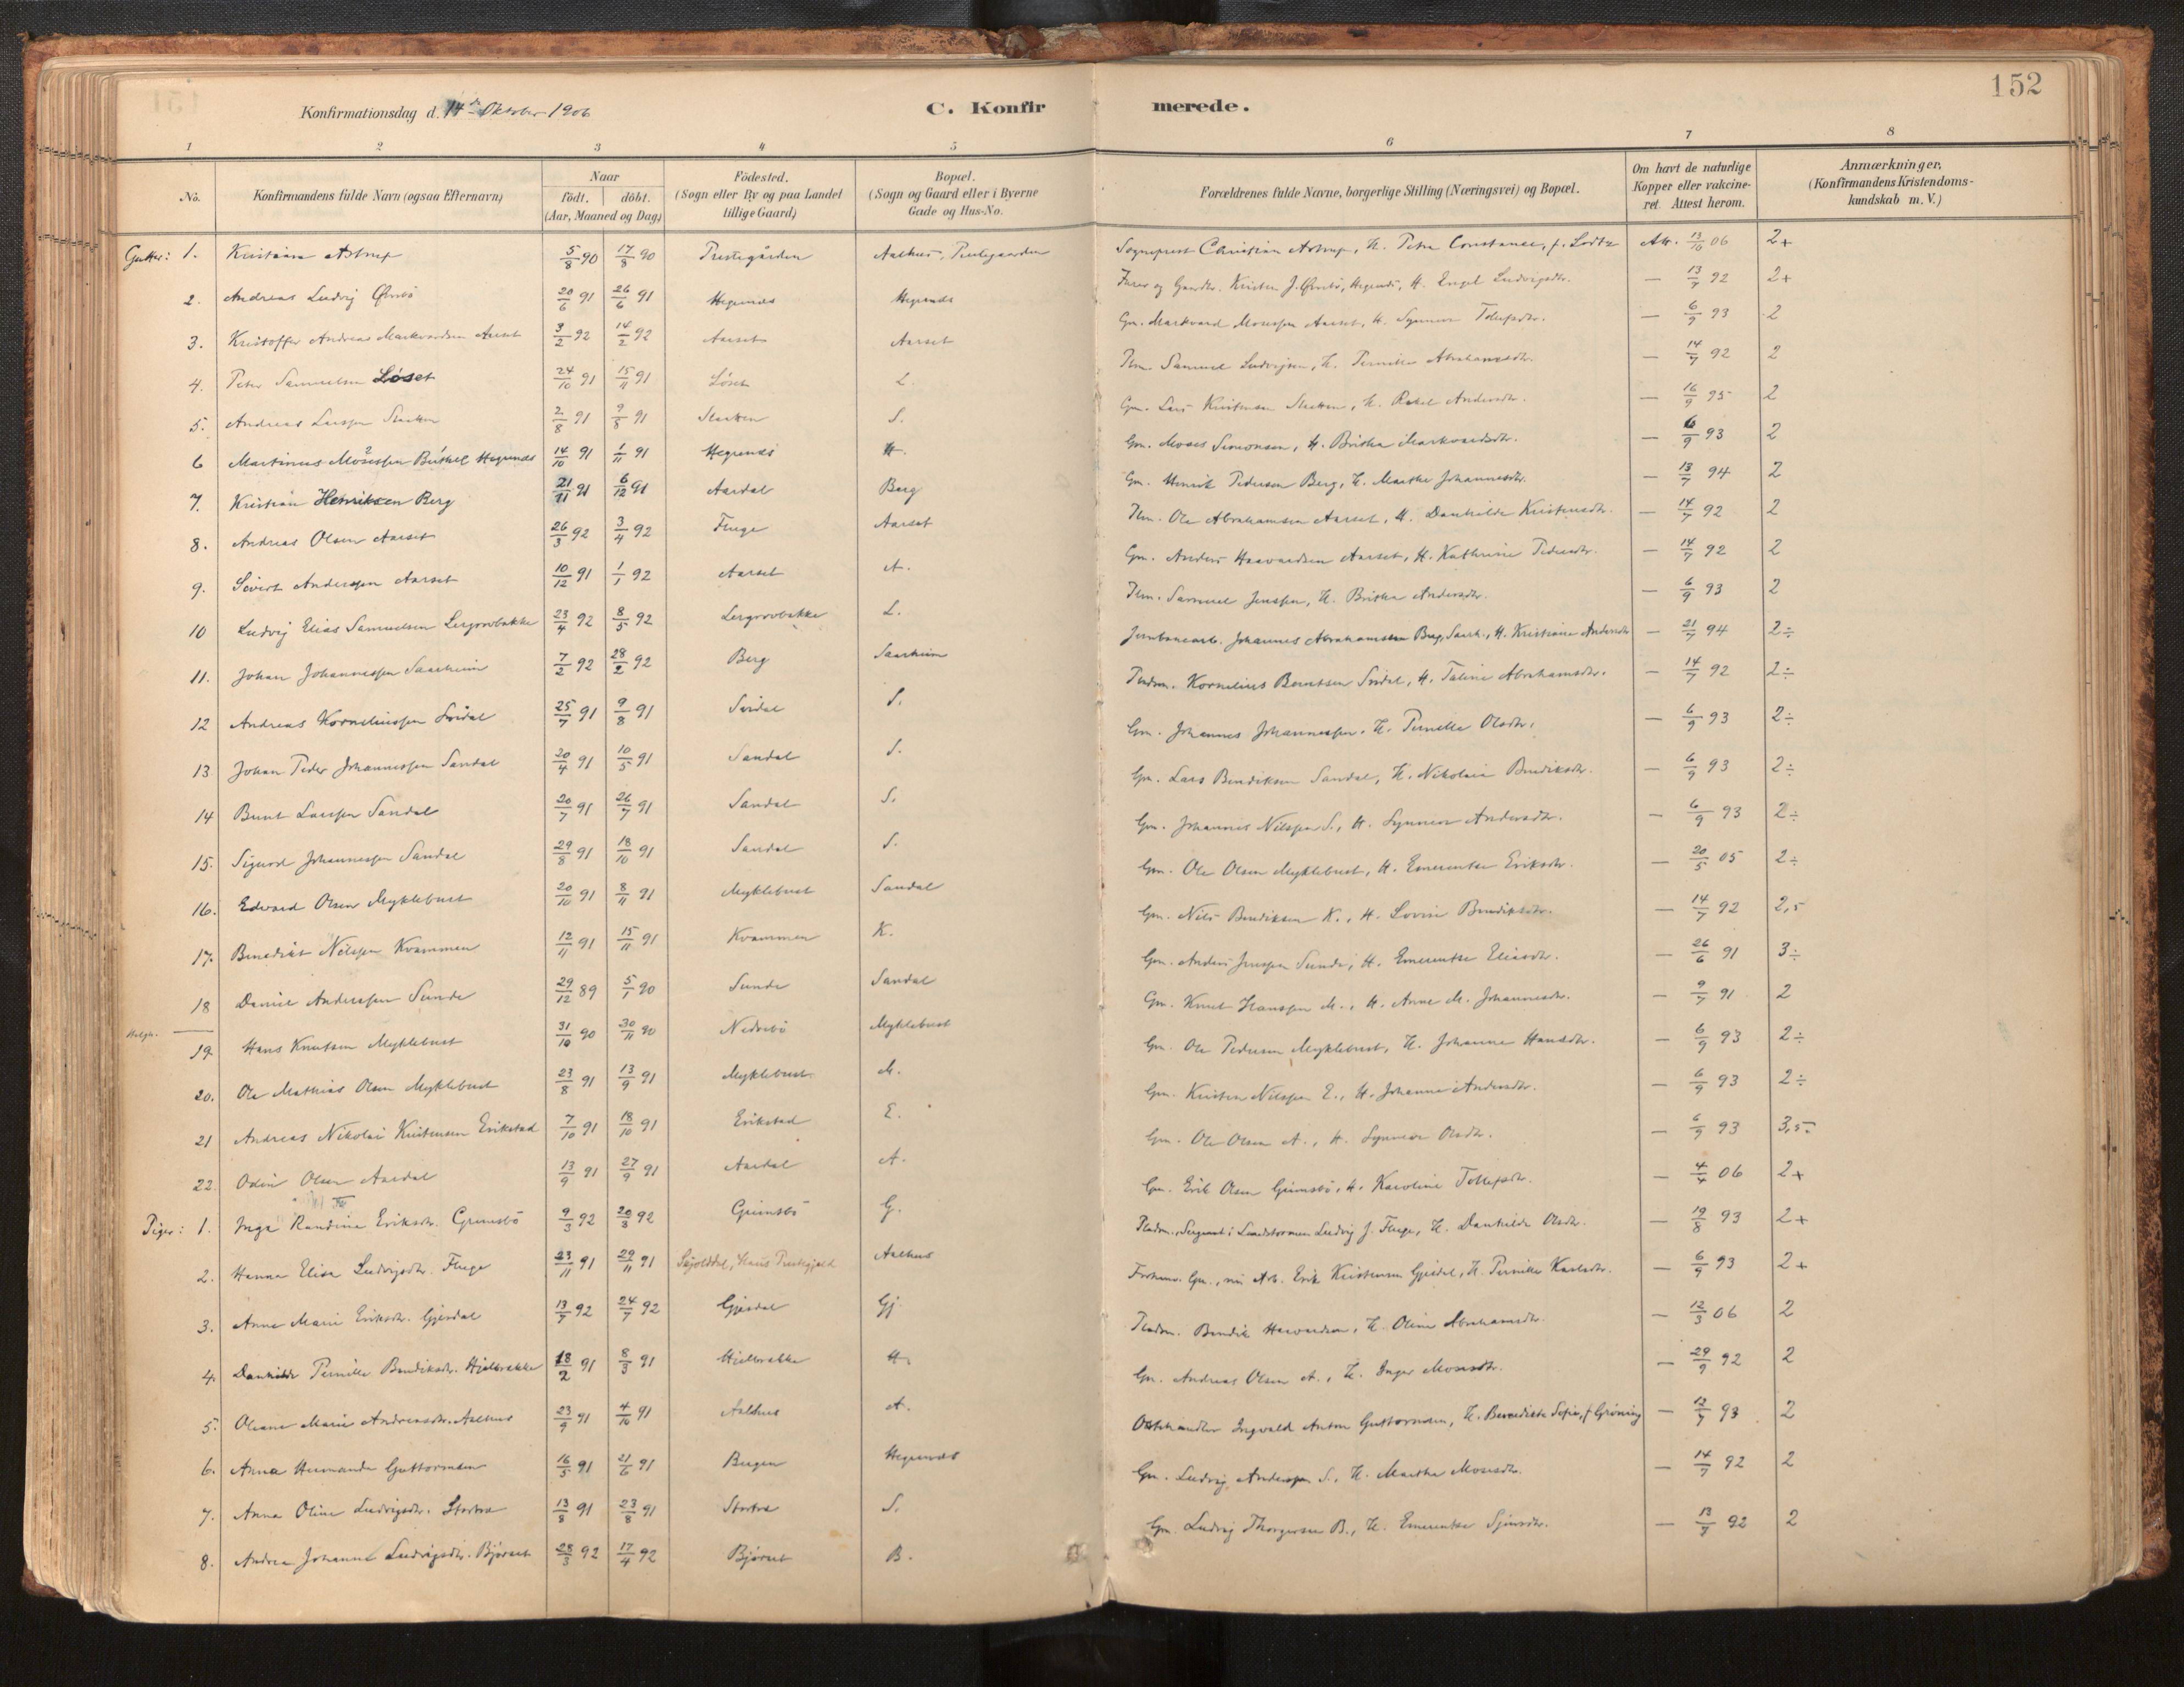 152
Konfirmationsdag d. 14de Oktober 1906
C. Konfirmerede.
1 2 3 4 5 6 7 8
No.
Konfirmandens fulde Navn (ogsaa Efternavn)
Naar
födt. döbt.
(Aar, Maaned og Dag)
Födested.
(Sogn eller By og paa Landet tillige Gaard)
Bopæl.
(Sogn og Gaard eller i Byerne Gade og Hus-No.
Forældrenes fulde Navne, borgerlige Stilling (Næringsvei) og Bopæl.
Om havt de naturlige Kopper eller vakcineret. Attest herom.
Anmærkninger,
(Konfirmandens Kristendomskundskab m. V.)
Gutter: 1. Kristian Astrup 5/8 90 17/8 90 Prestegården Aalhus, Prestegaarden Sogneprest Christian Astrup, H. Petra Constance, f. Att. 13/10 06 2+
2. Andreas Ludvig 20/6 91 26/6 91 Hegrenes Hegrenes H. Engel Ludvigsdtr. — 13/7 92 2+
3. Kristoffer Andreas Markvardsen Aarset 3/2 92 14/2 92 Aarset Aarset Gm. Markvard Mosessen Aarset, H. Synneve Tollefsdtr. — 6/9 93 2
4. Peter Samuelsen Løset 24/10 91 15/11 91 Löset L. Samuel Ludvigsen, H. Pernille Abrahamsdtr. — 14/7 92 2
5. Andreas Larssen Slatten 2/8 91 9/8 91 Slatten S. Gm. Lars Kristensen Slatten, H. Rakel Andersdtr. — 16/9 95 2
6 Martinus Mosessen Hegrenes 14/10 91 1/11 91 Hegrenes H. Gm. Moses Simonsen, H. Britha Markvardsdtr. — 6/9 93 2
7. Kristian Henriksen Berg 21/11 91 6/12 91 Aardal Berg Gm. Henrik Pedersen Berg, H. Marthe Johannesdtr. — 13/7 94 2
8. Andreas Olsen Aarset 26/3 92 3/4 92 Fluge Aarset Ole Abrahamsen Aarset, H. Danhilde Kristensdtr. — 14/7 92 2
9. Sivert Anderssen Aarset 10/12 91 1/1 92 Aarset A. Gm. Anders Haavardsen Aarset, H. Kathrine Pedersdtr. — 14/7 92 2
10 Ludvig Elias Samuelsen Lergrovbakke 23/4 92 8/5 92 Lergrovbakke L. Samuel Jenssen, H. Britha Andersdtr. — 6/9 93 2
11. Johan Johannessen Saarheim 7/2 92 28/2 92 Berg Saarheim Jernbanearb. Johannes Abrahamsen Berg, Saarh., H. Kristiane Andersdtr — 21/7 94 2÷
12 Andreas Korneliussen Svidal 25/7 91 9/8 91 Svidal S. Pladsm. Kornelius Berntsen Svidal, H. Taline Abrahamsdtr. — 14/7 92 2÷
13. Johan Peder Johannessen Sandal 20/4 91 10/5 91 Sandal S. Gm. Johannes Johannessen, H. Pernille Olsdtr. — 6/9 93 2÷
14 Bernt Larssen Sandal 20/7 91 26/7 91 Sandal S. Gm. Lars Bendiksen Sandal, H. Nikolaia Bendiksdtr. — 6/9 93 2÷
15. Sigurd Johannessen Sandal 29/8 91 18/10 91 Sandal S. Gm. Johannes Nilssen S., H. Synneve Andersdtr. — 6/9 93 2÷
16. Edvard Olsen Myklebust 20/10 91 8/11 91 Myklebust Sandal Gm. Ole Olsen Myklebust, H. Emerentse Eriksdtr. — 20/5 05 2÷
17. Benedikt Nilssen Kvammen 12/11 91 15/11 91 Kvammen K. Gm. Nils Bendiksen K., H. Lovise Bendiksdtr. — 14/7 92 2,5
18 Daniel Anderssen Sunde 29/12 89 5/1 90 Sunde Sandal Gm. Anders Jenssen Sunde, H. Emerentse Eliasdtr. — 26/6 91 3÷
19. Hans Knutsen Myklebust 31/10 90 30/11 90 Nedrebö Myklebust Gm. Knut Hanssen M., H. Anne M. Johannesdtr. — 9/7 91 2
20. Ole Mathias Olsen Myklebust 23/8 91 13/9 91 Myklebust M. Gm. Ole Pedersen Myklebust, H. Johanne Hansdtr. — 6/9 93 2÷
21 Andreas Nikolai Kristensen Erikstad 7/10 91 18/10 91 Erikstad E. Gm. Kristen Nilssen E., H. Johanne Andersdtr. — 6/9 93 2÷
22. Odin Olsen Aardal 13/9 91 27/9 91 Aardal A. Gm. Ole Olsen A., H. Synneve Olsdtr. — 6/9 93 3,5
Piger: 1. Inga Randina Eriksdtr. Grimsbö 9/3 92 20/3 92 Grimsbö G. Gm. Erik Olsen Grimsbö, H. Karoline Tollefsdtr. — 4/4 06 2+
2. Hanna Elisa Ludvigsdtr. Fluge 23/11 91 29/11 91 Haus Prestegjeld Aalhus Pladsm., Sergeant i Landstormen Ludvig J. Fluge, H. Danhilde Olsdtr. — 19/8 93 2+
3. Anna Marie Eriksdtr. Gjesdal 13/7 92 24/7 92 Gjesdal Gj. Forhenv. Gm., nu Arb. Erik Kristensen Gjesdal, H. Pernille Karlsdtr. — 6/9 93 2+
4. Danhilde Pernille Bendiksdtr. Hjelbrække 18/2 91 8/3 91 Hjelbrække H. Pladsm. Bendik Havardsen, H. Oline Abrahamsdtr. — 12/3 06 2
5. Oleane Marie Andreasdtr. Aalhus 23/9 91 4/10 91 Aalhus A. Gm. Andreas Olsen A., H. Inger Mosesdtr. — 29/9 92 2
6. Anna Hermanda Guttormsen 16/5 91 21/6 91 Bergen Hegrenes Ingvald Anton Guttormsen, H. Benedikte Sofie, f. Gröning — 12/7 93 2
7. Anna Oline Ludvigsdtr. 13/8 91 23/8 91 S. Gm. Ludvig Anderssen S., H. Marthe Mosesdtr. — 14/7 92 2
8. Andrea Johanne Ludvigsdtr. Björset 28/3 92 17/4 92 Björset B. Gm. Ludvig Thorgersen B., H. Emerentse — 13/7 92 2